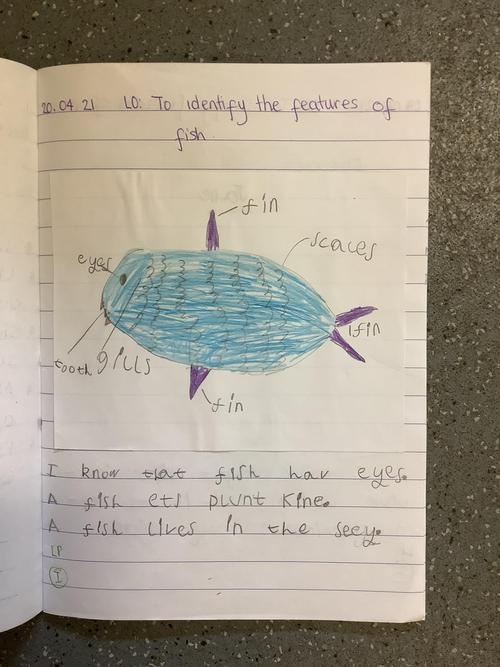 20.04.21 LO: To identify the features of
fish.
fin
scales
eyes
fin
tooth gills
fin
I know that fish hav eyes.
A fish ets plunt Kine.
A fish lives in the seey.
LP
I